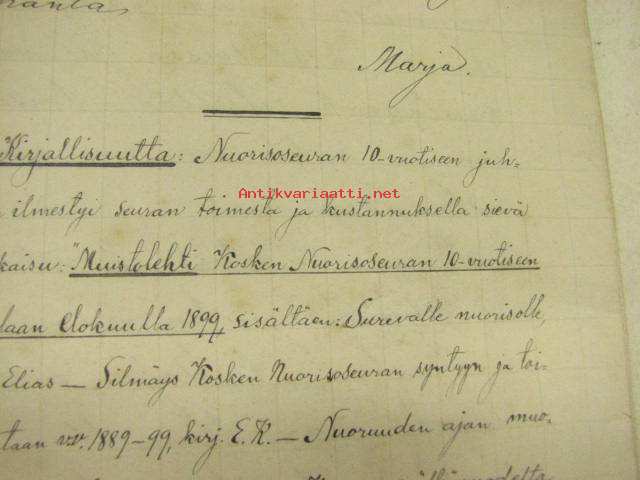 Marja.
Kirjallisuutta: Nuorisoseuran 10-vuotiseen juh-
Antikvariaatti.net
ilmestyi seuran toimesta ja kustannuksella sievä
kaisu: "Muistolehti Kosken Nuorisoseuran 10-vuotiseen
laan Elokuulla 1899, sisältäen: Surevalle nuorisolle,
Elias — Silmäys Kosken Nuorisoseuran syntyyn ja toi-
taan vv. 1889-99, kirj. E. K. — Nuoruuden ajan muo-